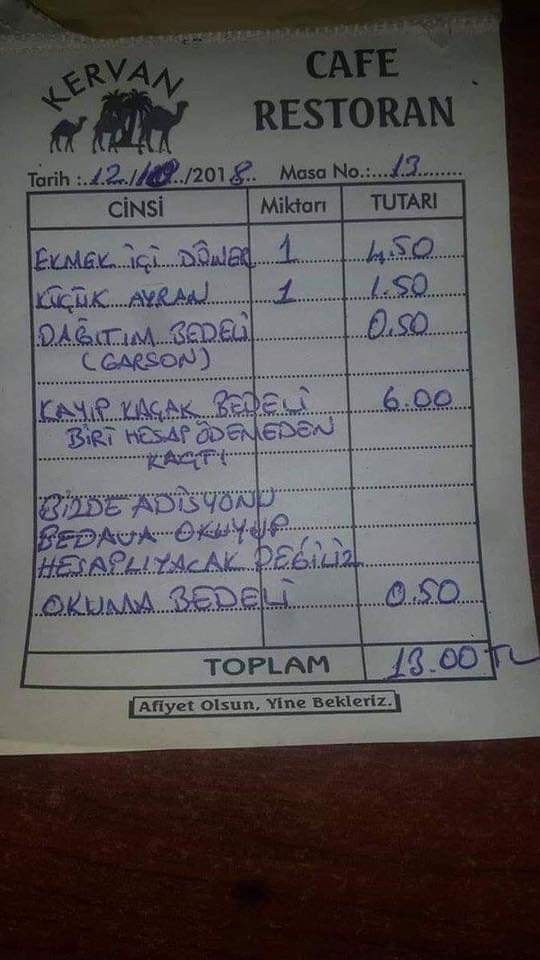 KERVAN
CAFE
RESTORAN
Tarih :..12../..../2018.. Masa No.:...13........
CİNSİ Miktarı TUTARI
EKMEK İÇİ DÖNER 1 4.50
KÜÇÜK AYRAN 1 1.50
DAĞITIM BEDELİ 0.50
(GARSON)
KAYIP KAÇAK BEDELİ 6.00
BİRİ HESAP ÖDEMEDEN
KAÇTI
BİZDE ADİSYONU
BEDAVA OKUYUP
HESAPLIYACAK DEĞİLİZ
OKUMA BEDELİ 0.50
TOPLAM 13.00 TL
Afiyet Olsun, Yine Bekleriz.